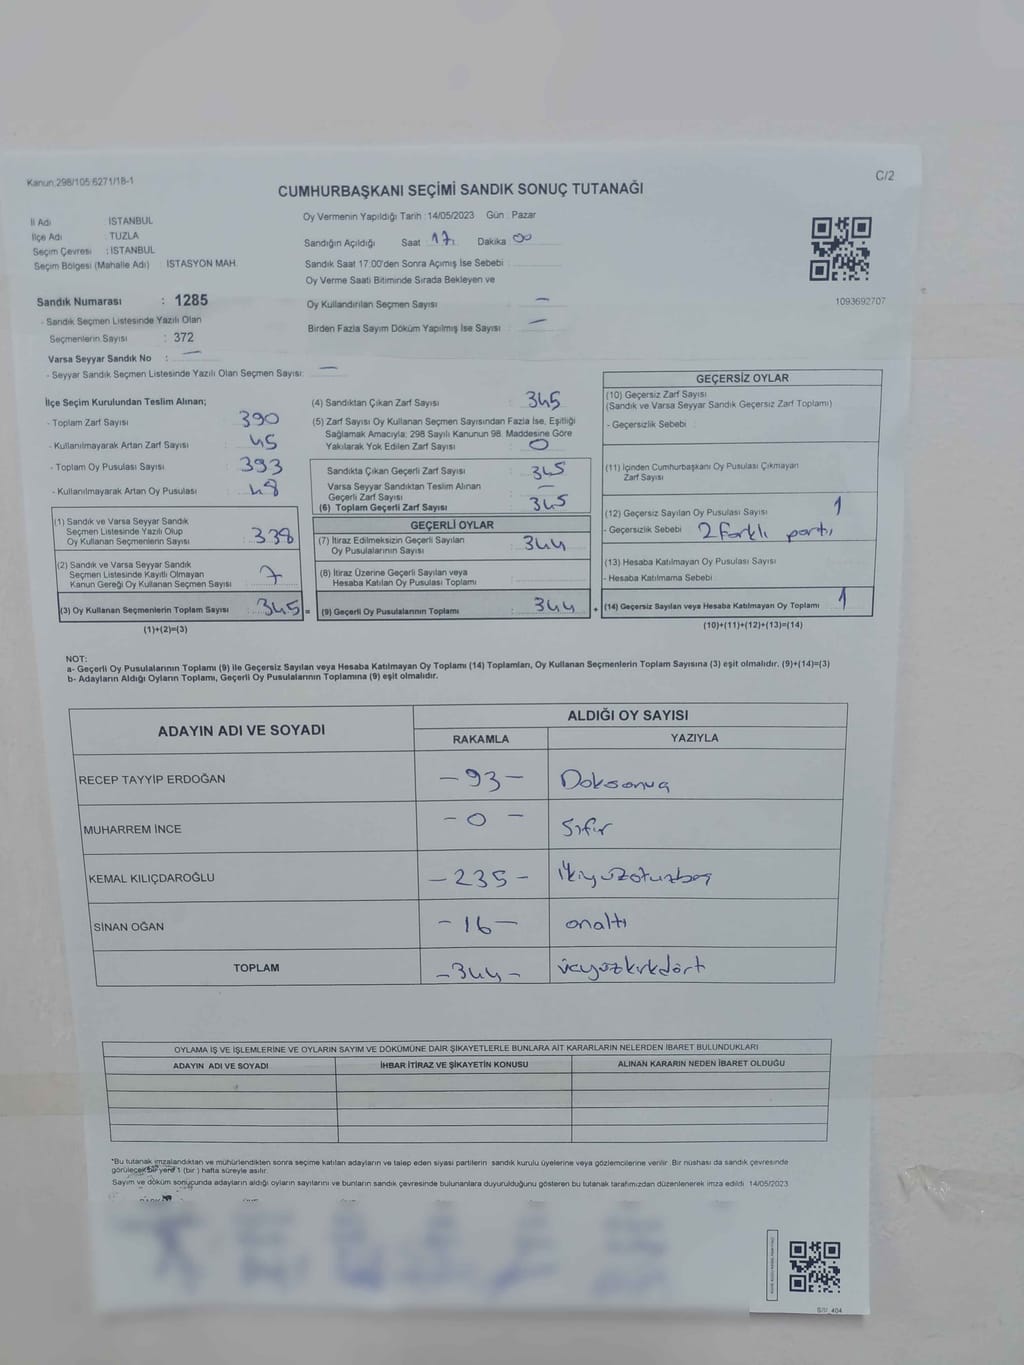 Kanun:298/105:6271/18-1
C/2
CUMHURBAŞKANI SEÇİMİ SANDIK SONUÇ TUTANAĞI
İl Adı : İSTANBUL
İlçe Adı : TUZLA
Seçim Çevresi : İSTANBUL
Seçim Bölgesi (Mahalle Adı) : İSTASYON MAH.
Oy Vermenin Yapıldığı Tarih : 14/05/2023 Gün : Pazar
Sandığın Açıldığı Saat 17 Dakika 00
Sandık Saat 17:00'den Sonra Açımış İse Sebebi :
Oy Verme Saati Bitiminde Sırada Bekleyen ve
Oy Kullandırılan Seçmen Sayısı : —
Birden Fazla Sayım Döküm Yapılmış İse Sayısı : —
1093692707
Sandık Numarası : 1285
- Sandık Seçmen Listesinde Yazılı Olan
Seçmenlerin Sayısı : 372
Varsa Seyyar Sandık No : —
- Seyyar Sandık Seçmen Listesinde Yazılı Olan Seçmen Sayısı: —
İlçe Seçim Kurulundan Teslim Alınan;
- Toplam Zarf Sayısı : 390
- Kullanılmayarak Artan Zarf Sayısı : 45
- Toplam Oy Pusulası Sayısı : 393
- Kullanılmayarak Artan Oy Pusulası : 48
(1) Sandık ve Varsa Seyyar Sandık
Seçmen Listesinde Yazılı Olup
Oy Kullanan Seçmenlerin Sayısı : 338
(2) Sandık ve Varsa Seyyar Sandık
Seçmen Listesinde Kayıtlı Olmayan
Kanun Gereği Oy Kullanan Seçmen Sayısı : 7
(3) Oy Kullanan Seçmenlerin Toplam Sayısı : 345 =
(1)+(2)=(3)
(4) Sandıktan Çıkan Zarf Sayısı : 345
(5) Zarf Sayısı Oy Kullanan Seçmen Sayısından Fazla İse, Eşitliği
Sağlamak Amacıyla; 298 Sayılı Kanunun 98. Maddesine Göre
Yakılarak Yok Edilen Zarf Sayısı : 0
Sandıkta Çıkan Geçerli Zarf Sayısı : 345
Varsa Seyyar Sandıktan Teslim Alınan
Geçerli Zarf Sayısı : —
(6) Toplam Geçerli Zarf Sayısı : 345
GEÇERLİ OYLAR
(7) İtiraz Edilmeksizin Geçerli Sayılan
Oy Pusulalarının Sayısı : 344
(8) İtiraz Üzerine Geçerli Sayılan veya
Hesaba Katılan Oy Pusulası Toplamı :
(9) Geçerli Oy Pusulalarının Toplamı : 344 +
GEÇERSİZ OYLAR
(10) Geçersiz Zarf Sayısı
(Sandık ve Varsa Seyyar Sandık Geçersiz Zarf Toplamı)
- Geçersizlik Sebebi :
(11) İçinden Cumhurbaşkanı Oy Pusulası Çıkmayan
Zarf Sayısı :
(12) Geçersiz Sayılan Oy Pusulası Sayısı : 1
- Geçersizlik Sebebi : 2 farklı parti
(13) Hesaba Katılmayan Oy Pusulası Sayısı :
- Hesaba Katılmama Sebebi :
(14) Geçersiz Sayılan veya Hesaba Katılmayan Oy Toplamı : 1
(10)+(11)+(12)+(13)=(14)
NOT:
a- Geçerli Oy Pusulalarının Toplamı (9) ile Geçersiz Sayılan veya Hesaba Katılmayan Oy Toplamı (14) Toplamları, Oy Kullanan Seçmenlerin Toplam Sayısına (3) eşit olmalıdır. (9)+(14)=(3)
b- Adayların Aldığı Oyların Toplamı, Geçerli Oy Pusulalarının Toplamına (9) eşit olmalıdır.
ADAYIN ADI VE SOYADI
ALDIĞI OY SAYISI
RAKAMLA YAZIYLA
RECEP TAYYİP ERDOĞAN -93- Doksanüç
MUHARREM İNCE -0- Sıfır
KEMAL KILIÇDAROĞLU -235- ikiyüzotuzbeş
SİNAN OĞAN -16- onaltı
TOPLAM -344- üçyüzkırkdört
OYLAMA İŞ VE İŞLEMLERİNE VE OYLARIN SAYIM VE DÖKÜMÜNE DAİR ŞİKAYETLERLE BUNLARA AİT KARARLARIN NELERDEN İBARET BULUNDUKLARI
ADAYIN ADI VE SOYADI İHBAR İTİRAZ VE ŞİKAYETİN KONUSU ALINAN KARARIN NEDEN İBARET OLDUĞU
*Bu tutanak imzalandıktan ve mühürlendikten sonra seçime katılan adayların ve talep eden siyasi partilerin sandık kurulu üyelerine veya gözlemcilerine verilir. Bir nüshası da sandık çevresinde
görülecek bir yere 1 (bir) hafta süreyle asılır.
Sayım ve döküm sonucunda adayların aldığı oyların sayılarını ve bunların sandık çevresinde bulunanlara duyurulduğunu gösteren bu tutanak tarafımızdan düzenlenerek imza edildi. 14/05/2023